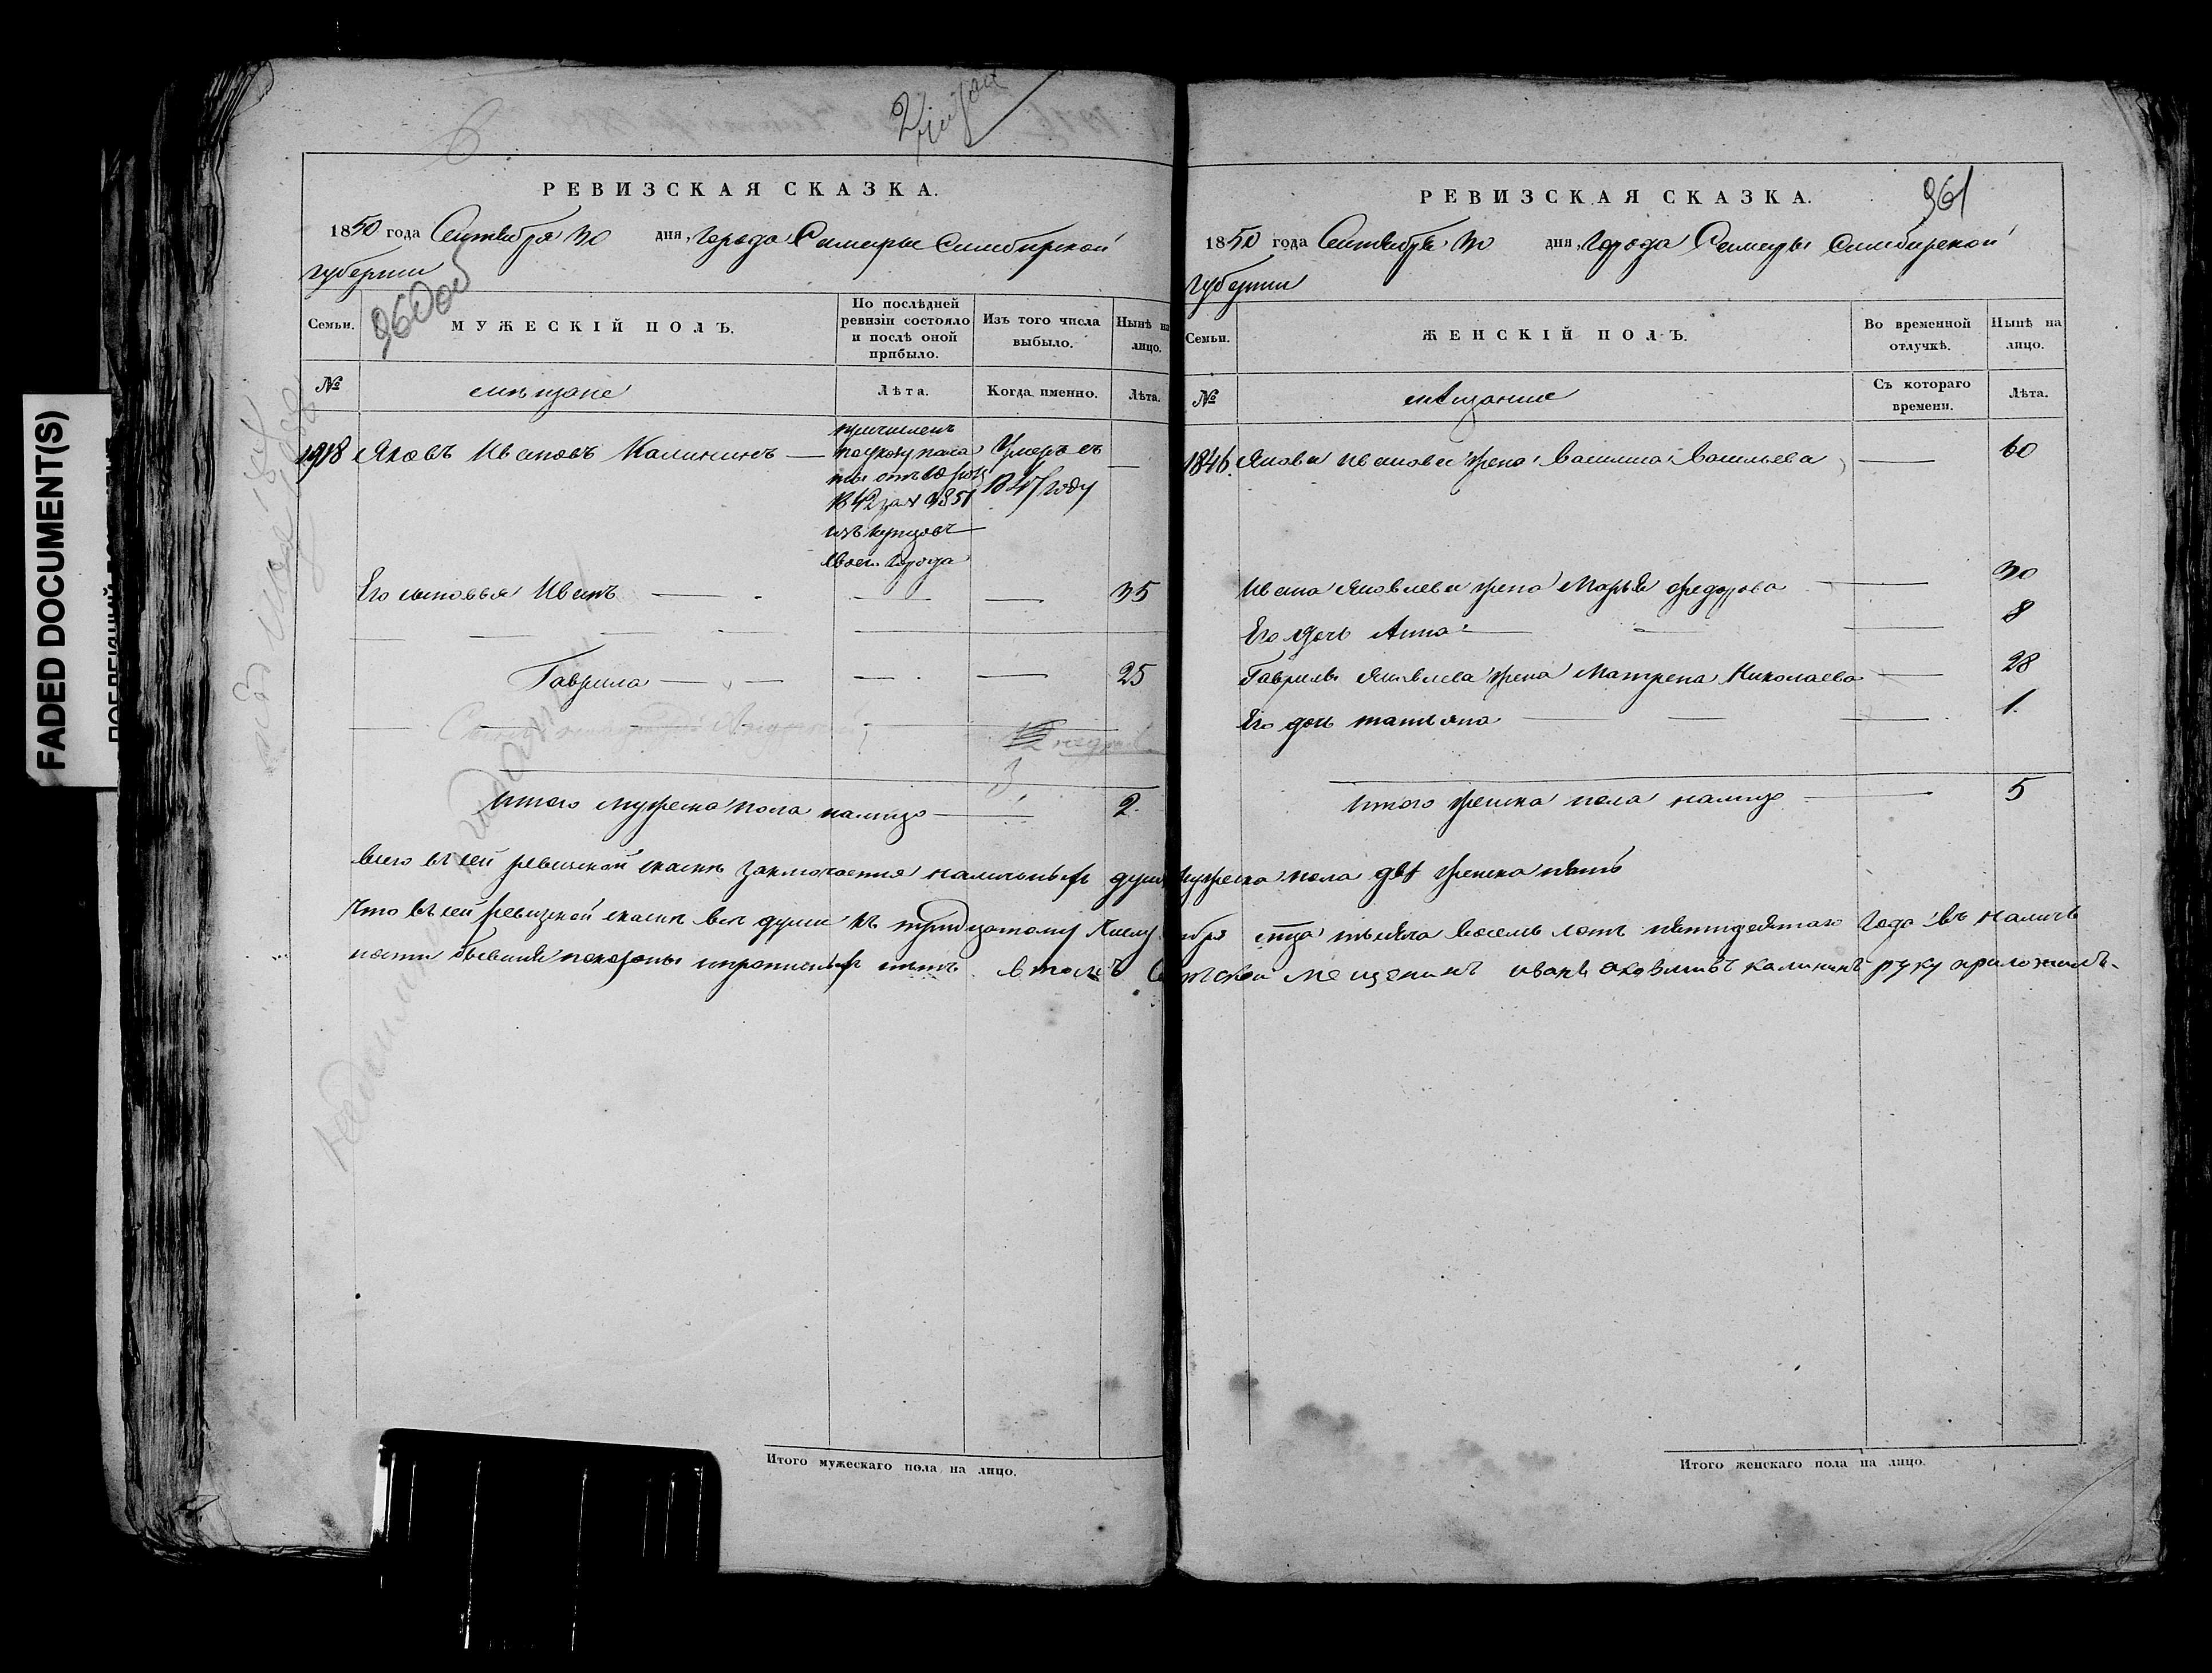 FADED DOCUMENT(S)
РЕВИЗСКАЯ СКАЗКА.
1850 года Сентября 30 дня, города Самары Симбирской
губернии
960 об
Семьи.
МУЖЕСКІЙ ПОЛЪ.
По послѣдней ревизіи состояло и послѣ оной прибыло.
Изъ того числа выбыло.
Нынѣ на лицо.
№
мѣщане
Лѣта.
Когда именно.
Лѣта.
Яковъ Ивановъ Калининъ —
причисленъ
по указу пала
ты отъ
1842 за № 3851
изъ купцовъ
сего города
Умеръ въ
1847 году
—
Его сыновья Иванъ — — — 35
Гаврила — — — 25
3
итого мужеска пола налицо — 2.
РЕВИЗСКАЯ СКАЗКА.
961
1850 года Сентября 30 дня, города Самары Симбирской
губернии
Семьи.
ЖЕНСКІЙ ПОЛЪ.
Во временной отлучкѣ.
Нынѣ на лицо.
№
мѣщане
Съ котораго времени.
Лѣта.
1846. Якова Иванова жена Василиса Васильева — 60
Ивана Яковлева жена Марья Федорова — 30
Его дочь Анна — 8
Гаврилы Яковлева жена Матрена Николаева — 28
Его дочь татьяна — 1.
итого женска пола налицо — 5
всего въ сей ревизской сказкѣ заключается наличныхъ душъ мужеска пола двѣ женска пять
Что въ сей ревизской сказкѣ все души къ тридцатому числу Сентября тысяча восемь сотъ пятидесятаго Года въ налич
ности бывшия показаны и прописныхъ нѣтъ. в томъ Самарской мещенинъ иванъ яковливъ калининъ руку приложилъ.
Итого мужескаго пола на лицо.
Итого женскаго пола на лицо.